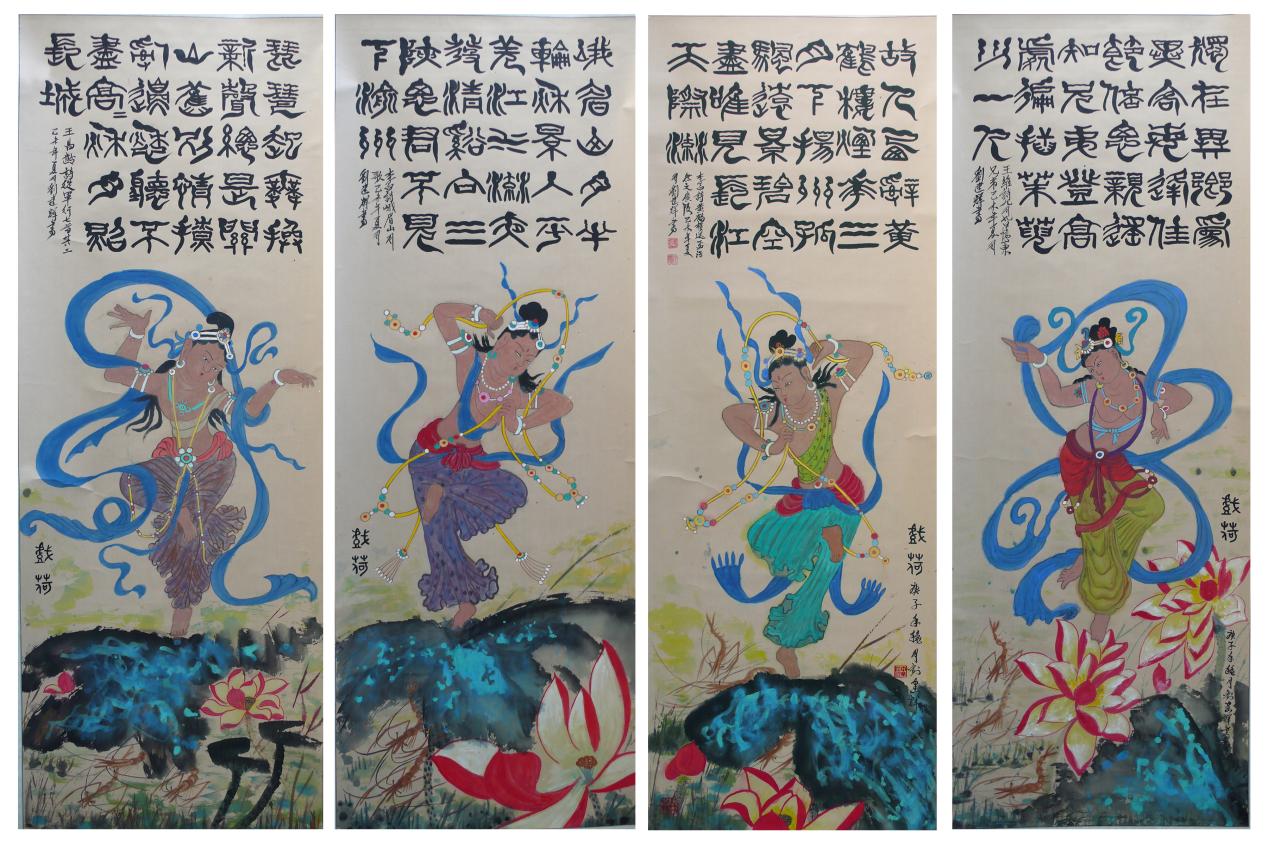 獨在異鄉為
異客每逢佳
節倍思親遙
知兄弟登高
處遍插茱萸
少一人
王維詩九月九日憶山東
兄弟己亥年春月
劉建祥書
戲荷
庚子年穐月劉建祥
故人西辭黃
鶴樓煙花三
月下揚州孤
颿遠景碧空
盡唯見長江
天際流
李白詩黃鶴樓送孟浩
然之廣陵己亥年夏
月劉建祥書
戲荷
庚子年穐月劉建祥
峨眉山月半
輪秌景入平
羌江水流夜
發清谿向三
峽思君不見
下渝州
李白詩峨眉山月
歌己亥年夏月
劉建祥書
戲荷
琵琶起舞換
新聲總是關
山舊別情撩
亂邊愁聽不
盡高=秌月照
長城
王昌齡詩從軍行七首其二
己亥年夏月劉建祥書
戲荷